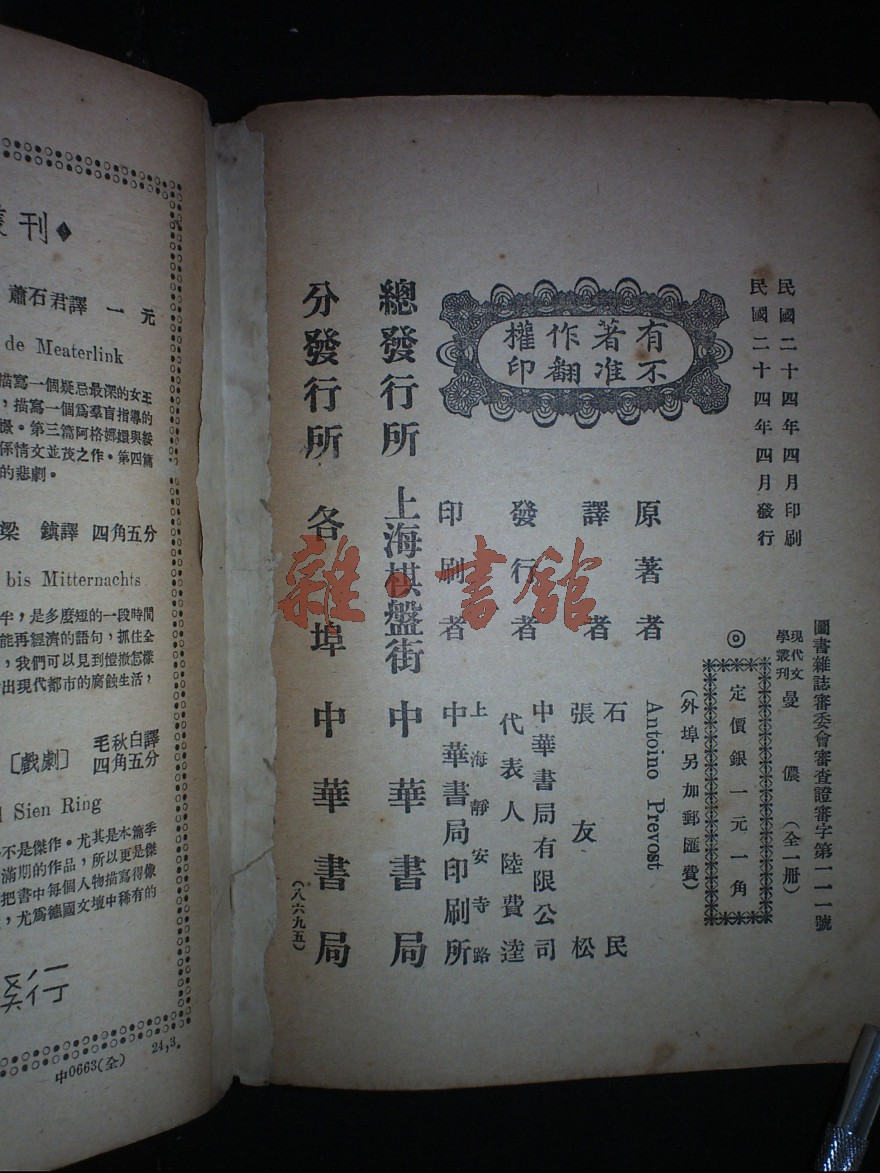 民國二十四年四月印刷
民國二十四年四月發行
圖書雜誌審委會審查證審字第一一一號
現代文學叢刊 曼儂(全一册)
◎定價銀一元一角
(外埠另加郵匯費)
有著作權
不准翻印
原著者 Antoino Prevost
譯者 石民
張友松
發行者 中華書局有限公司
代表人陸費逵
印刷者 上海靜安寺路
中華書局印刷所
總發行所 上海棋盤街 中華書局
分發行所 各埠 中華書局
(八六九五)
雜·書館
刊◆
蕭石君譯 一元
de Meaterlink
描寫一個疑忌最深的女王
,描寫一個爲羣盲指導的
。第三篇阿格娜嬛與
係情文並茂之作。第四篇
的悲劇。
梁鎮譯 四角五分
bis Mitternachts
半,是多麽短的一段時間
能再經濟的語句,抓住全
,我們可以見到
出現代都市的腐蝕生活,
[戲劇] 毛秋白譯
四角五分
Sien Ring
不是傑作。尤其是本篇季
滿期的作品,所以更是傑
把書中每個人物描寫得像
,尤爲德國文壇中稀有的
中0663(全) 24,3.